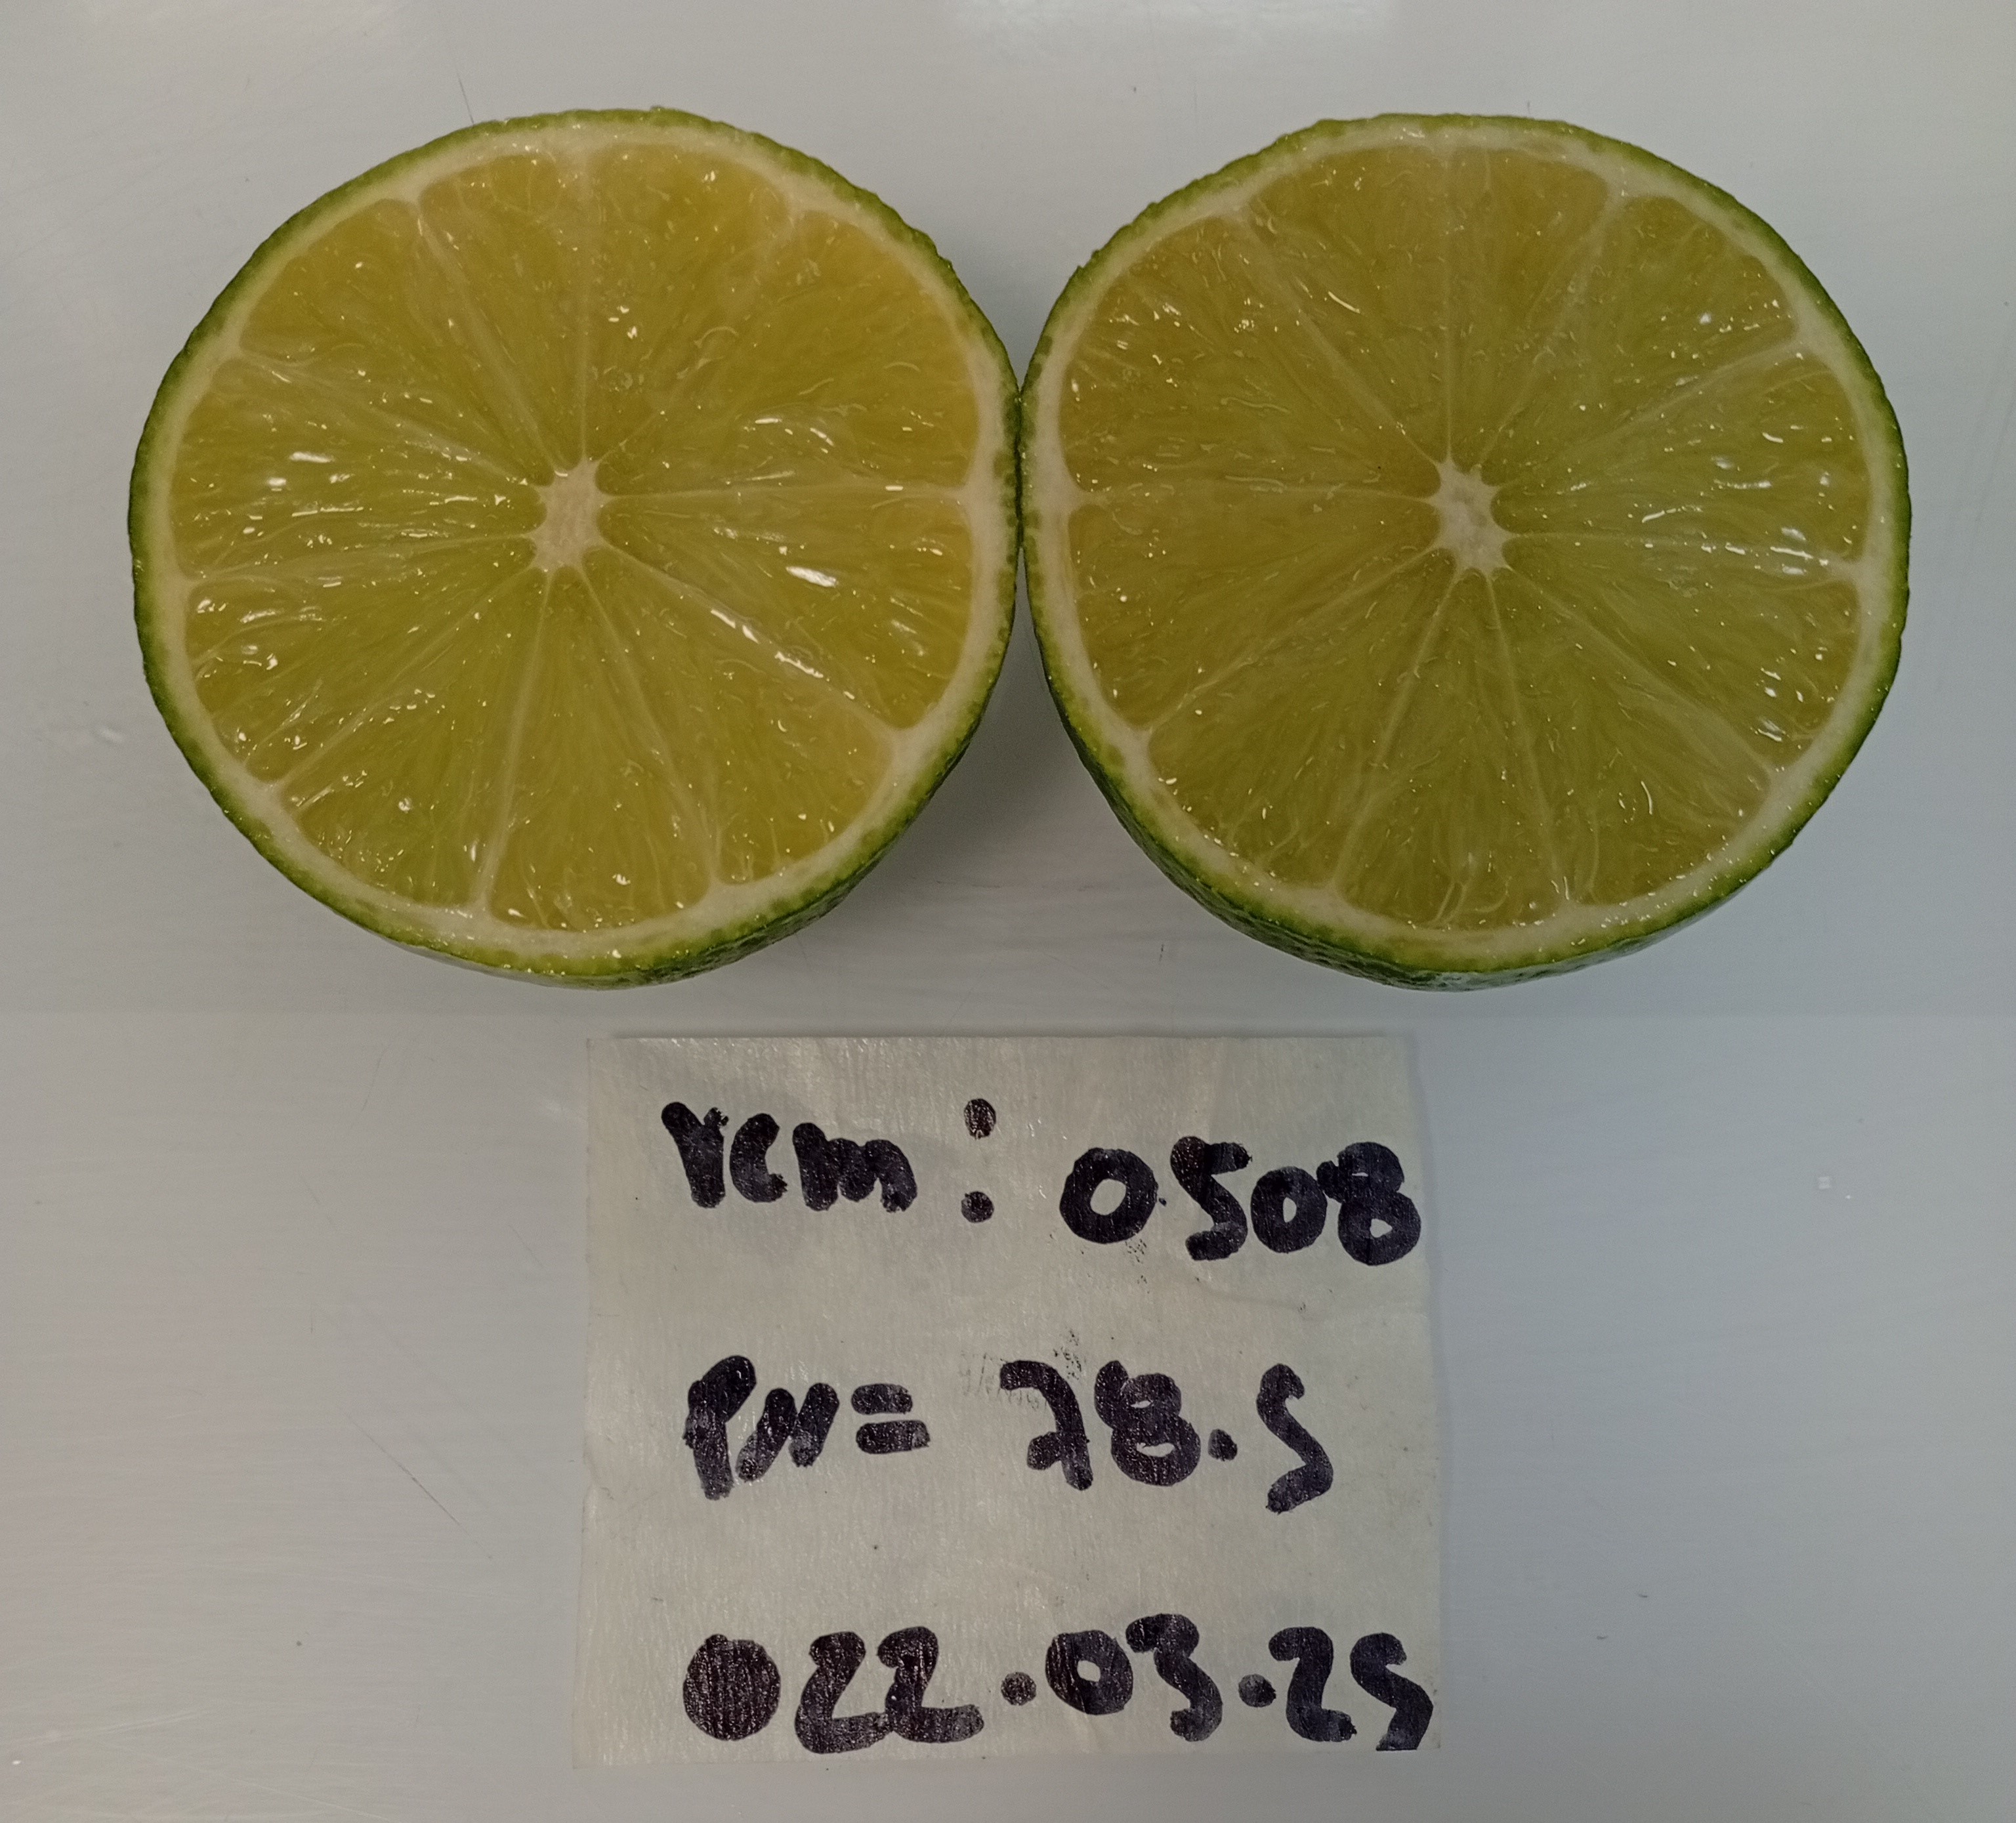 rcm: 0508
PN= 78.5
22.03.25